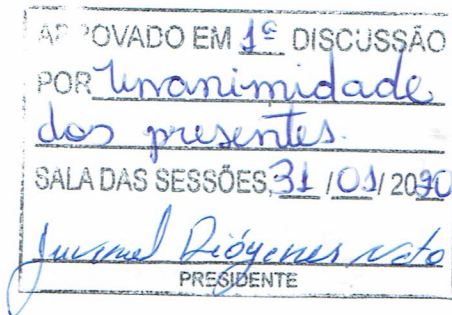 AP OVADO EM 1ª DISCUSSÃO
POR Unanimidade
dos presentes.
SALA DAS SESSÕES, 31 / 01 / 2020
Diógenes Neto
PRESIDENTE